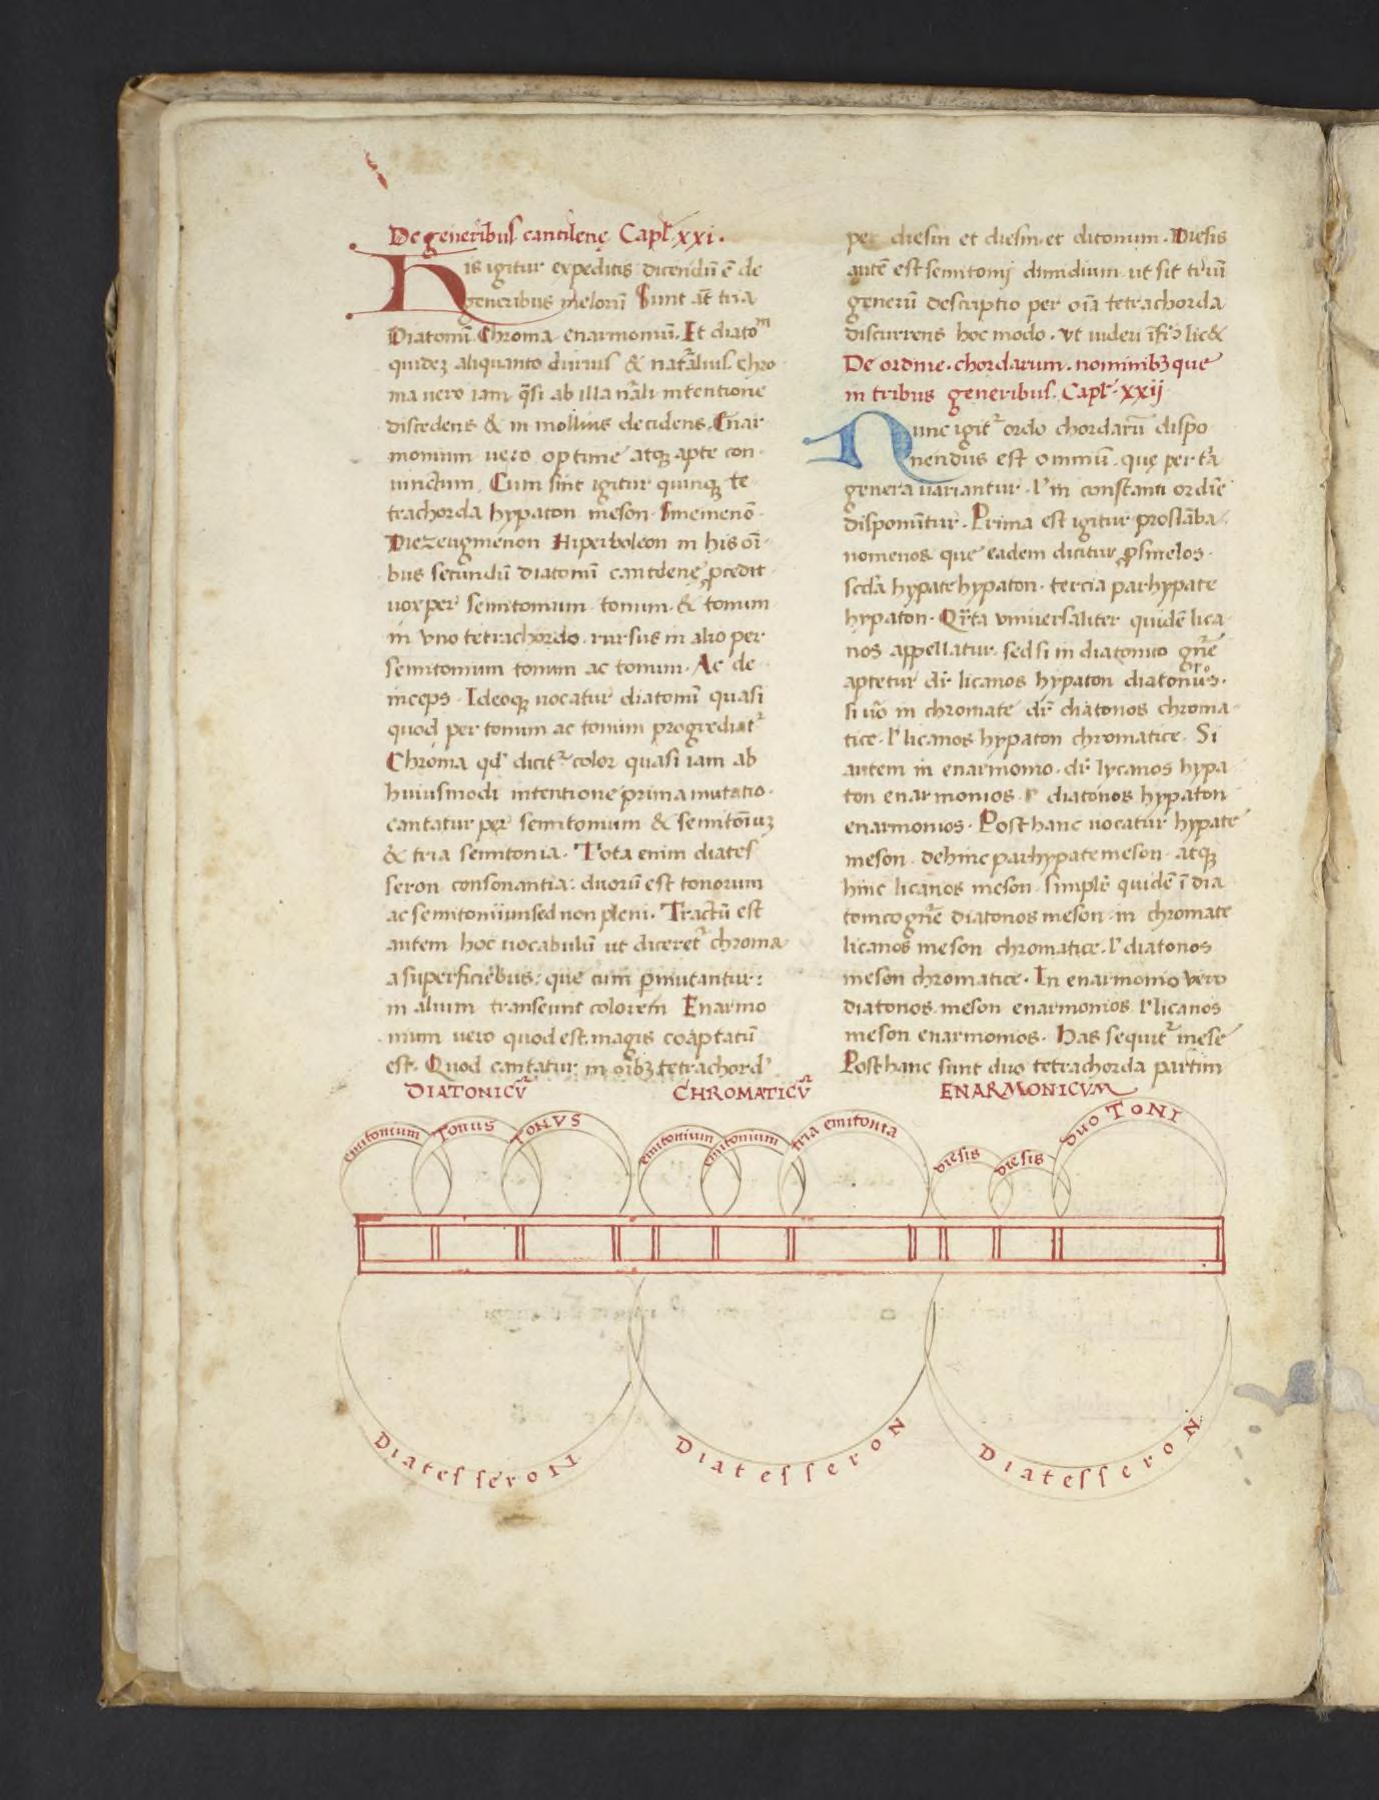 De generibus cantilenę Capl' xxi.
His igitur expeditis dicendū ē de
generibus melorū Sunt aūt tria
Diatonū. Chroma enarmoniū. Et diatoᵐ
quidez aliquanto durius & nat̄alius. Chro
ma uero iam q̄si ab illa n̄ali intentione
discedens & in mollius decidens. Enar
monium uero optime atqȝ apte con
iunctum. Cum sint igitur quinqȝ te
trachorda hypaton meson Sinemenō
Diezeugmenon Hiperboleon in his oī
bus secundū diatonū cantilenę ꝓcedit
uox per semitonium tonum & tonum
in vno tetrachordo. rursus in alio per
semitonium tonum ac tonum. Ac de
inceps. Ideoqȝ uocatur diatonū quasi
quod per tonum ac tonum progrediat᷑
Chroma qd' dicit᷑ color quasi iam ab
huiusmodi intentione prima mutatio.
cantatur per semitonium & semitoīuȝ
& tria semitonia. Tota enim diates
seron consonantia: duorū est tonorum
ac semitonii sed non pleni. Tractū est
autem hoc uocabulū ut diceret᷑ chroma
a superficiebus: que cum ꝑmutantur:
in alium transeunt colorem Enarmo
nium uero quod est magis coaptatū
est. Quod cantatur in oībȝ tetrachord'
per diesin et diesin et ditonum. Diesis
autē est semitonij dimidium ut sit triū
generū descriptio per oīa tetrachorda
discurrens hoc modo. vt uideri licet
De ordine. chordarum. nominibȝque
in tribus generibus. Capl' xxij
Nunc igit᷑ ordo chordarū dispo
nendus est omniū. quę per t̄a
genera uariantur. l' in constanti ordīe
disponūtur. Prima est igitur proslāba
nomenos que eadem dicitur ꝓsmelos.
secda hypate hypaton. tercia parhypate
hypaton. Qr̄ta vniuersaliter quidē lica
nos appellatur. sed si in diatonio gn̄e
aptetur dr̄ licanos hypaton diatonos.
si uō in chromate dr̄ diatonos chroma
tice. l' licanos hypaton chromatice. Si
autem in enarmonio. dr̄ lycanos hypa
ton enarmonios l' diatonos hypaton
enarmonios. Post hanc uocatur hypate
meson. dehinc parhypate meson. atqȝ
hinc licanos meson. simplr̄ quidē ī dia
tonico gn̄e diatonos meson. in chromate
licanos meson chromatice. l' diatonos
meson chromatice. In enarmonio vero
diatonos meson enarmonios l' licanos
meson enarmonios. Has sequit᷑ mese
Post hanc sunt duo tetrachorda partim
DIATONICV̄ CHROMATICV̄ ENARMONICVM
emitonium Tonus TONVS emitonium emitonium tria emitonia diesis diesis duo TONI
Diatesseron Diatesseron Diatesseron